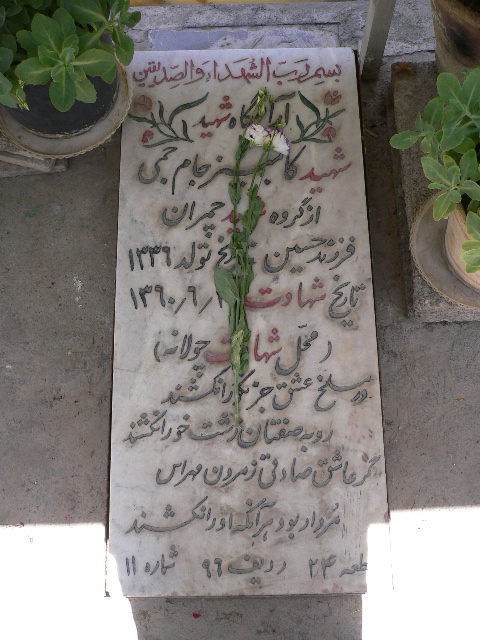 بسم رب الشهداء والصدیقین
آرامگاه شهید
شهید کامبیز جام جمی
از گروه شهید چمران
فرزند حسین تاریخ تولد ۱۳۳۶
تاریخ شهادت ۱۳۶۰/۶/
(محل شهادت چولانه)
در مسلخ عشق جز نکو را نکشند
روبه صفتان زشت خو را نکشند
گر عاشق صادقی ز مردن مهراس
مردار بود هر آنکه او را نکشند
قطعه ۲۴ ردیف ۹۶ شماره ۱۱